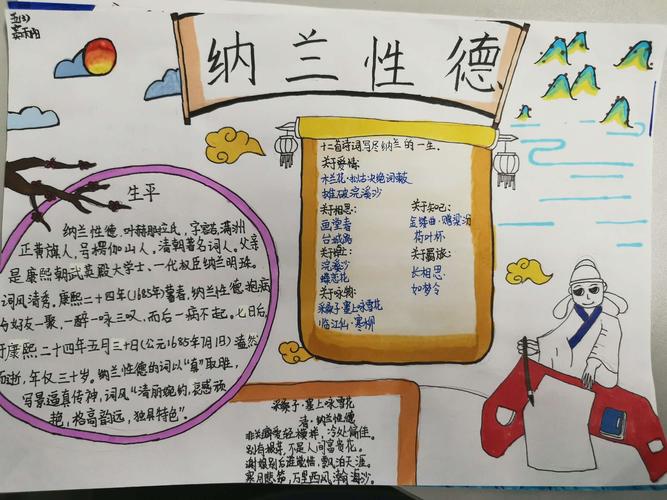 五(3)
纳兰性德
十二首诗词写尽纳兰的一生.
关于爱情:
木兰花·拟古决绝词柬友
摊破浣溪沙
关于相思:
画堂春
台城路
浣溪沙
蝶恋花
关于咏物:
采桑子·塞上咏雪花
临江仙·寒柳
关于知己:
金缕曲·赠梁汾
荷叶杯
关于羁旅:
长相思
如梦令
生平
纳兰性德.叶赫那拉氏,字容若,满洲
正黄旗人,号楞伽山人。清朝著名词人。父亲
是康熙朝武英殿大学士、一代权臣纳兰明珠。
词风清秀,康熙二十四年(1685年)暮春,纳兰性德抱病
与好友一聚,一醉一咏三叹,而后一病不起。七日后,
于康熙二十四年五月三十日(公元1685年7月1日)溘然
而逝,年仅三十岁。纳兰性德的词以“真”取胜,
写景逼真传神,词风“清丽婉约,哀感顽
艳,格高韵远,独具特色”。
采桑子·塞上咏雪花
清·纳兰性德
非关癖爱轻模样,冷处偏佳。
别有根芽,不是人间富贵花。
谢娘别后谁能惜,飘泊天涯。
寒月悲笳,万里西风瀚海沙。